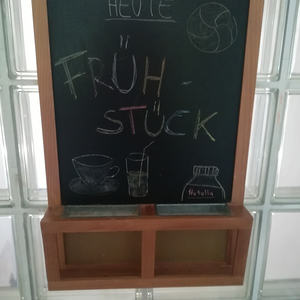 HEUTE
FRÜH-
STÜCK
Nutella